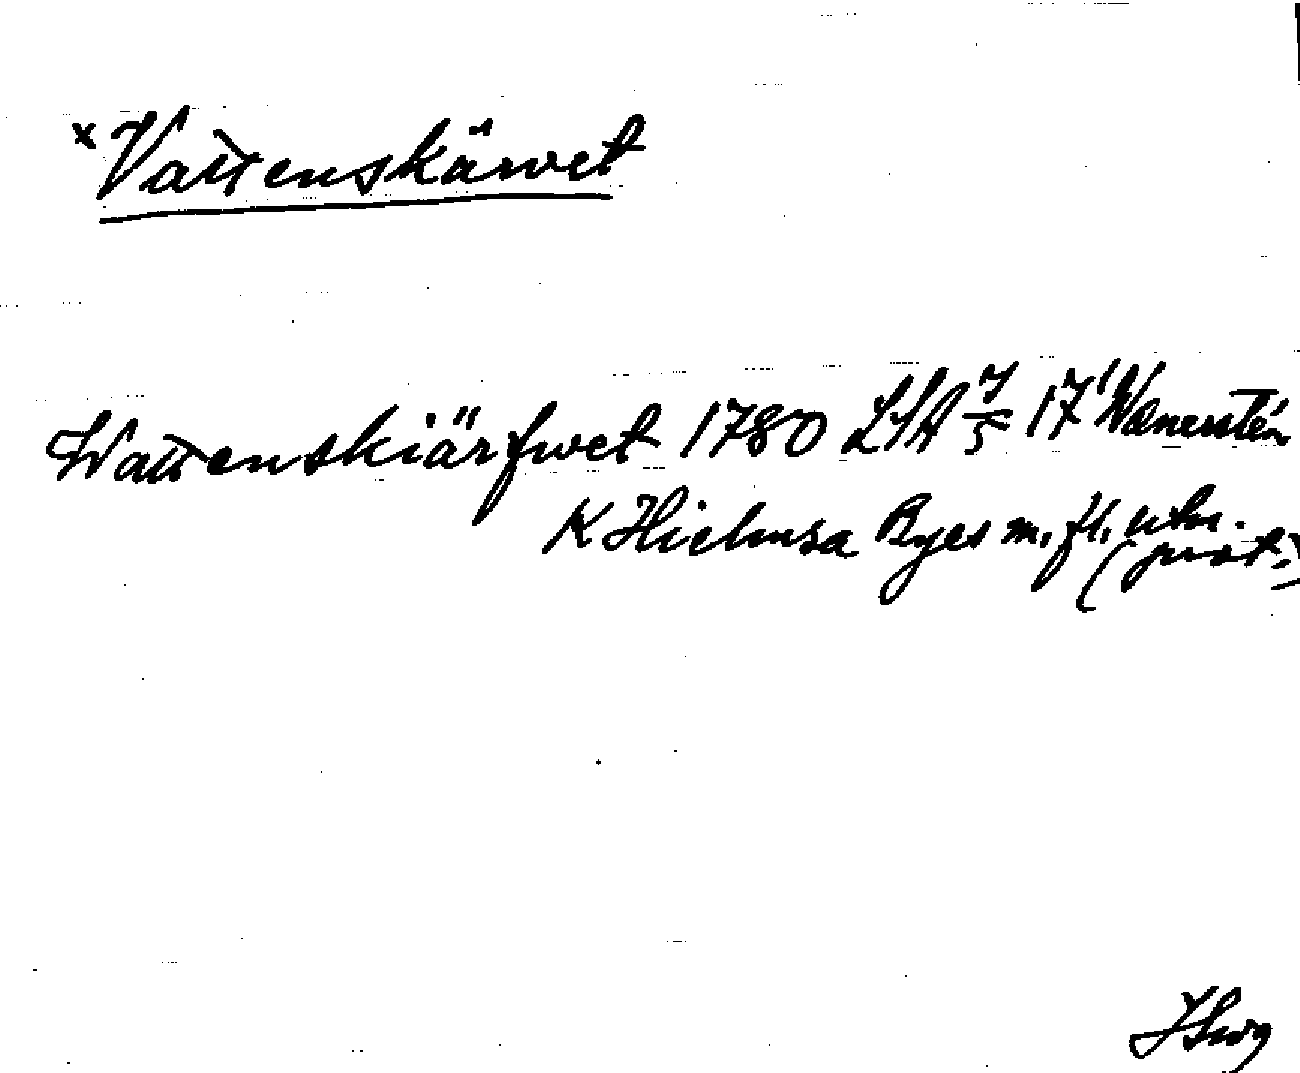 x Vattenskärvet
Wattenskiärfwet 1780 LSA 7/5 17' Wänersten
K Hielmsa Ryes m. fl. utm.
(prot.)